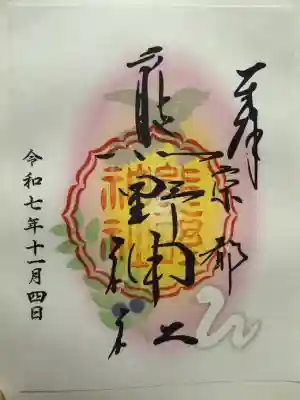 奉
京都
熊野神社
令和七年十一月四日